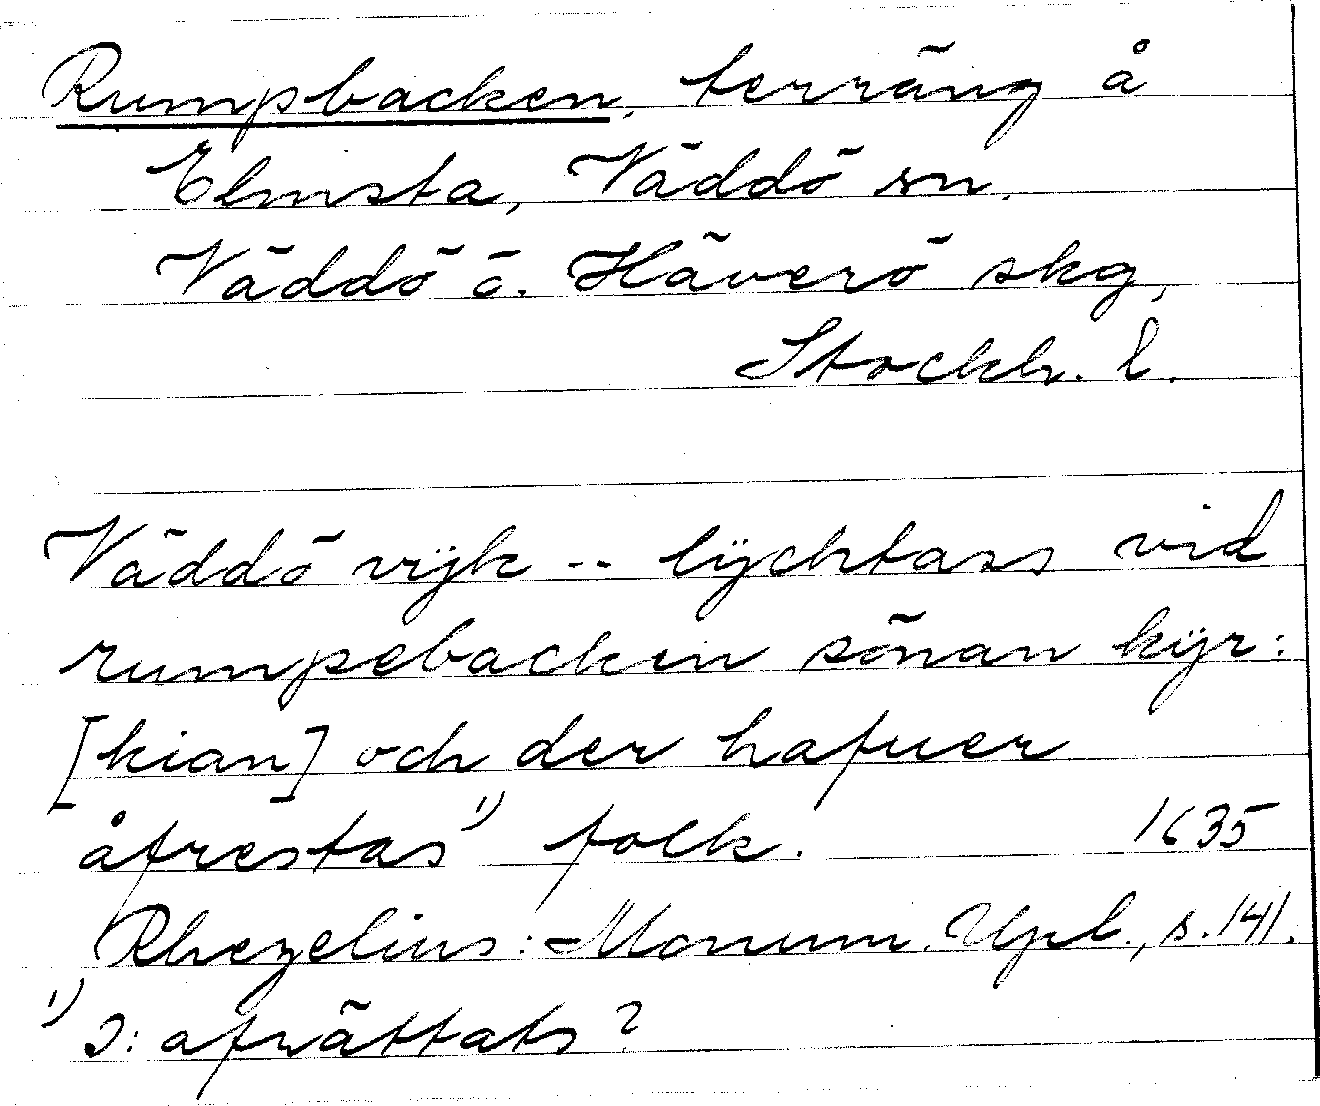 Rumpbacken, terräng å
Elmsta, Väddö sn.
Väddö ö. Häverö skg,
Stockh. l.
Väddö vijk -- lÿchtass vid
rumpebacken sönan kÿr:
[kian] och der hafuer
åfrestas¹⁾ folk. 1635
Rhezelius: Monum. Upl., s. 141.
¹⁾ ɔ: afrättats?